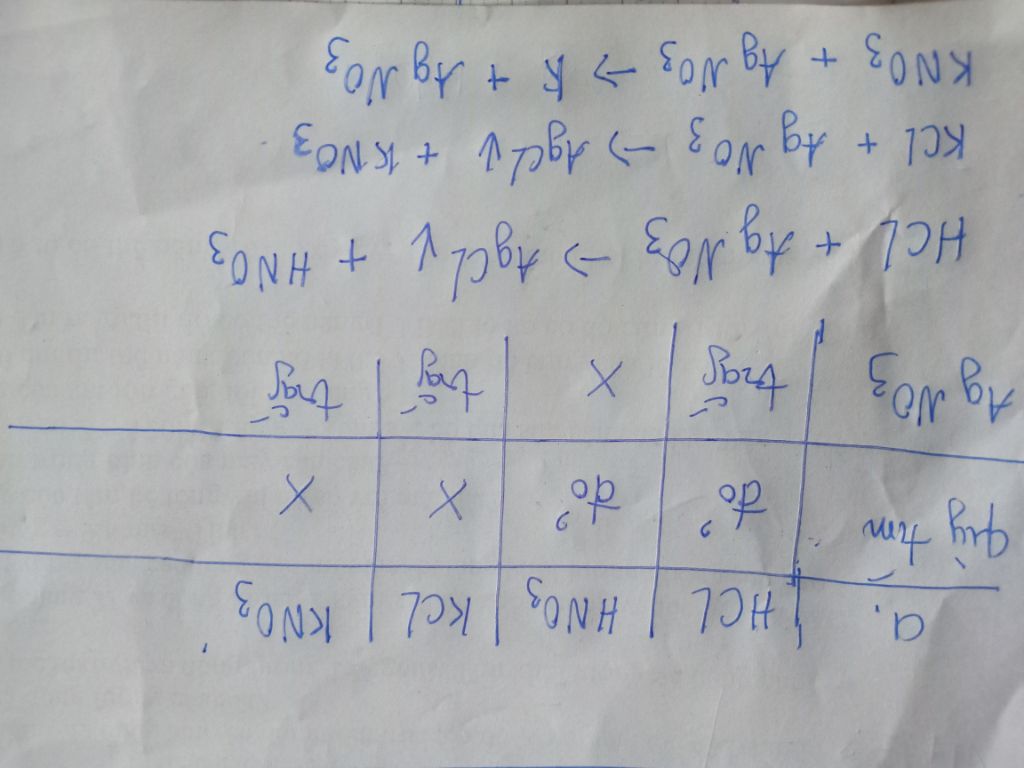 a. HCL HNO3 KCL KNO3
quỳ tím đỏ đỏ X X
AgNO3 trắng X trắng trắng
HCL + AgNO3 → AgCl↓ + HNO3
KCl + AgNO3 → AgCl↓ + KNO3
KNO3 + AgNO3 → K + AgNO3